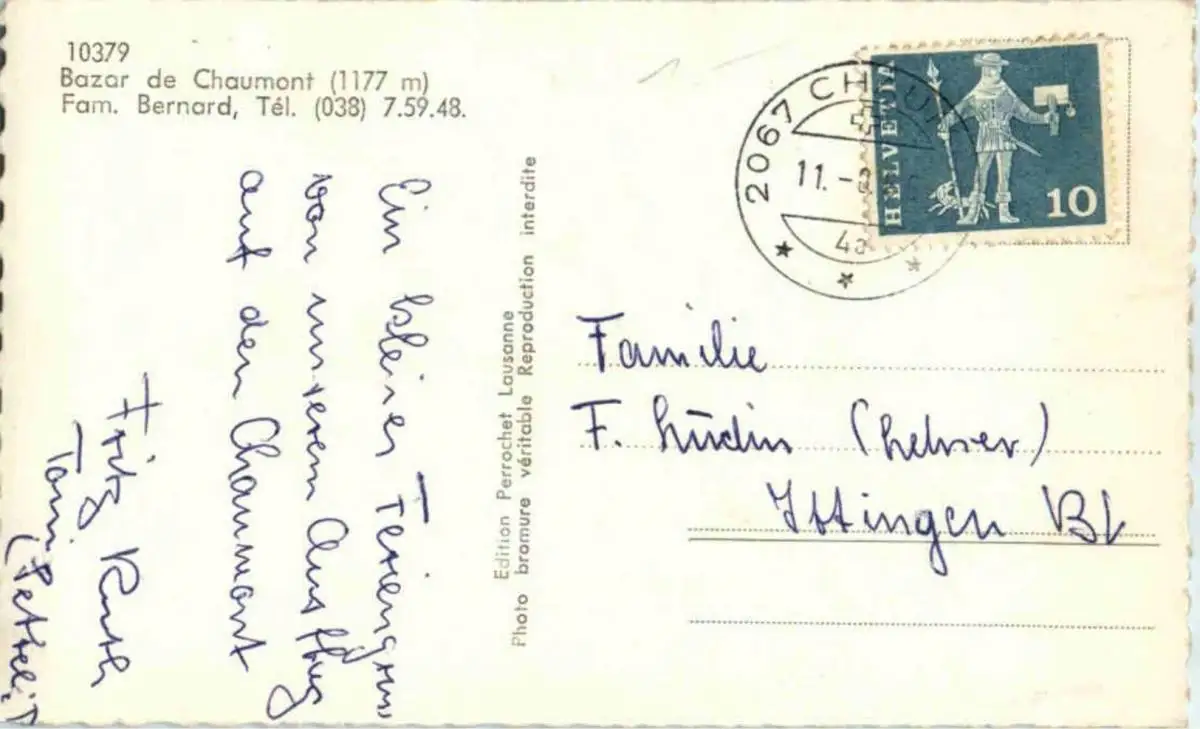 10379
Bazar de Chaumont (1177 m)
Fam. Bernard, Tél. (038) 7.59.48.
Ein kleiner Feriengruss
von unserem Ausflug
auf den Chaumont
Fritz Ruth
Toni
Edition Perrochet Lausanne
Photo bromure véritable Reproduction interdite
2067 CHAUM
11. -
HELVETIA
10
Familie
F. Lüdin (Lehrer)
Ittingen BL